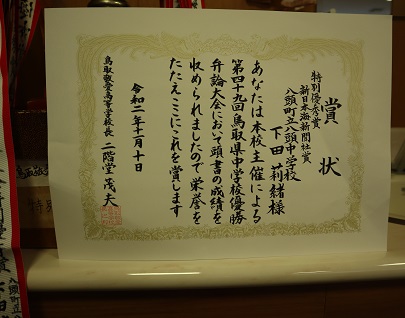 賞状
特別優秀賞
新日本海新聞社賞
八頭町立八頭中学校
下田莉緒様
あなたは本校主催による
第四十九回鳥取県中学校優勝
弁論大会において頭書の成績を
収められましたので栄誉を
たたえここにこれを賞します
令和二年十一月十日
鳥取敬愛高等学校長 二階堂茂夫